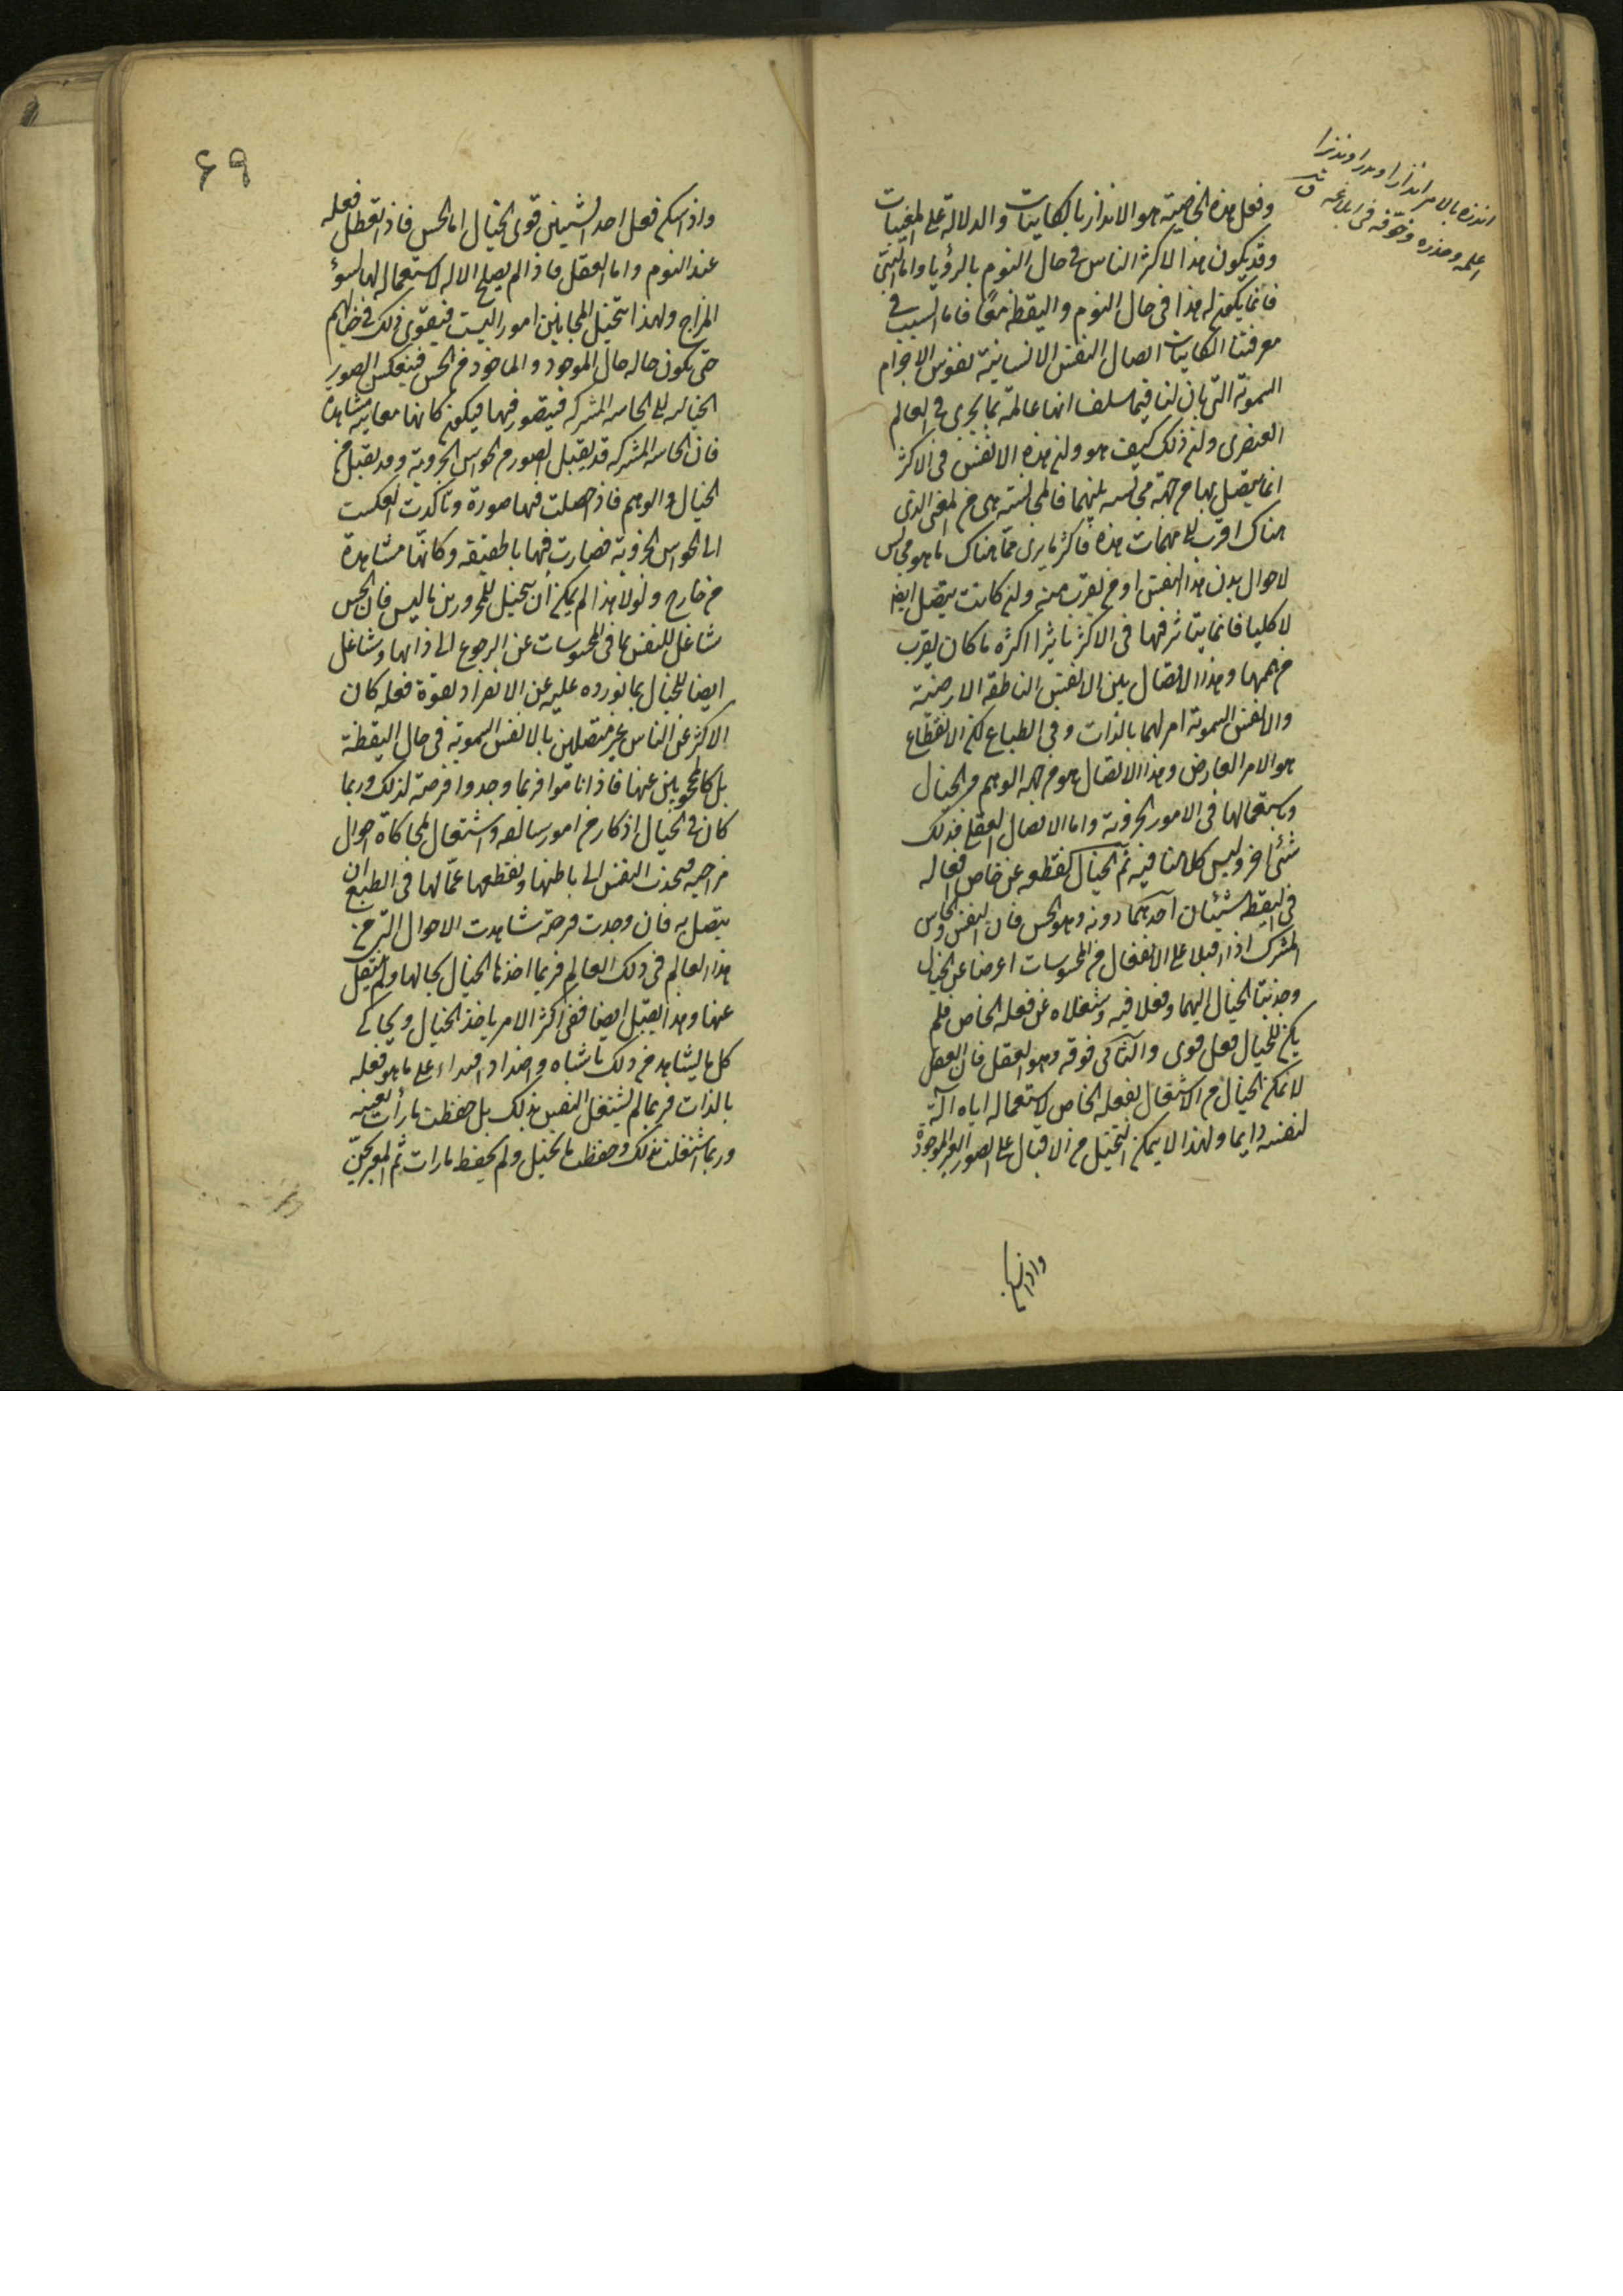 وفعل هذه الخاصية هو الانذار بالكاينات والدلالة على المغيبات
وقد يكون هذا لاكثر الناس في حال النوم بالرؤيا واما النبي
فانما يكون له هذا في حال النوم واليقظة معا فاما السبب في
معرفتنا الكاينات اتصال النفس الانسانية بنفوس الاجرام
السموية التي بان لنا فيما سلف انها عالمة بما يجري في العالم
العنصري وان ذلك كيف هو وان هذه الانفس في الاكثر
انما يتصل بها من جهة مجانسه بينهما فالمجانسة هي من المعنى الذي
هناك اقرب الى مهمات هذه فاكثر ما يرى مما هناك ما هو مجانس
لاحوال بدن هذا النفس او من يقرب منه وان كانت يتصل ايضا
لا كليا فانما يتاثر فيها في الاكثر تاثيرا اكثره ما كان يقرب
من هممها وهذا الاتصال بين الانفس الناطقة الارضية
والانفس السموية امر لهما بالذات وفي الطباع لكن الانقطاع
هو الامر العارض وهذا الاتصال هو من جهة الوهم والخيال
وباستعمالها في الامور الجزوية واما الاتصال العقلي فذلك
شئ اخر وليس كلامنا فيه ثم الخيال يقطعه عن خاص افعاله
في اليقظة شيئان احدهما دونه وهو الحس فان النفس والحاس
المشترك اذا اقبلا على الانفعال من المحسوسات اعرضا عن الخيال
وجذبتا الخيال اليهما وفعلا فيه وشغلاه عن فعله الخاص فلم
يكن للخيال فعل قوى والثاني فوقه وهو العقل فان العقل
لا يمكن الخيال من الاشتغال بفعله الخاص لاستعماله اياه آلة
لنفسه دايما ولهذا لا يمكن التخيل من الاقبال على الصور الغير الموجودة
انذره بالامر انذارا ونذرا ونذيرا
اعلمه وحذره وخوفه في ابلاغه ق
٤٩
واذا سكن فعل احد الشيئين قوى الخيال اما الحس فاذا تعطل فعله
عند النوم واما العقل فاذا لم يصلح الاله لاستعماله لها لسوء
المزاج ولهذا يتخيل المجانين امورا ليست فيقوى ذلك في خيالهم
حتى يكون حاله حال الموجود والماخوذ من الحس فينعكس الصور
الخياليه الى الحاسه المشتركه فيتصور فيها فيكون كانها معاينه مشاهدة
فان الحاسه المشتركه قد يقبل الصور من الحواس الجزوية وقد يقبل من
الخيال والوهم فاذا حصلت فيها صورة وتاكدت انعكست
الى الحواس الجزوية فصارت فيها بالحقيقه وكانها مشاهدة
من خارج ولولا هذا لم يمكن أن يتخيل للممرورين ما ليس فان الحس
شاغل للنفس بما في المحسوسات عن الرجوع الى ذاتها وشاغل
ايضا للخيال بما يورده عليه عن الانفراد بقوة فعله كان
الاكثر من الناس غير متصلين بالانفس السموية في حال اليقظة
بل كالمحجوبين عنها فاذا ناموا فربما وجدوا فرصة لذلك وربما
كان في الخيال اذكار من امور سالفه واشتغال لمحاكاة احوال
مزاجيه فيجذب النفس الى باطنها ويقطعها عمالها في الطبع ان
يتصل به فان وجدت فرصة شاهدت الاحوال التي من
هذا العالم في ذلك العالم فربما اخذها الخيال بحالها ولم ينتقل
عنها وهذا يقبل ايضا ففي اكثر الامر ياخذ الخيال ويحاكي
كل ما يشاهد من ذلك باشباه واضداد اقتداء على ما هو فعله
بالذات فربما لم يشتغل النفس بذلك بل حفظت ما رأت بعينه
وربما اشتغلت بذلك وحفظت ما تخيل ولم يحفظ ما رات ثم المعبر يخمن